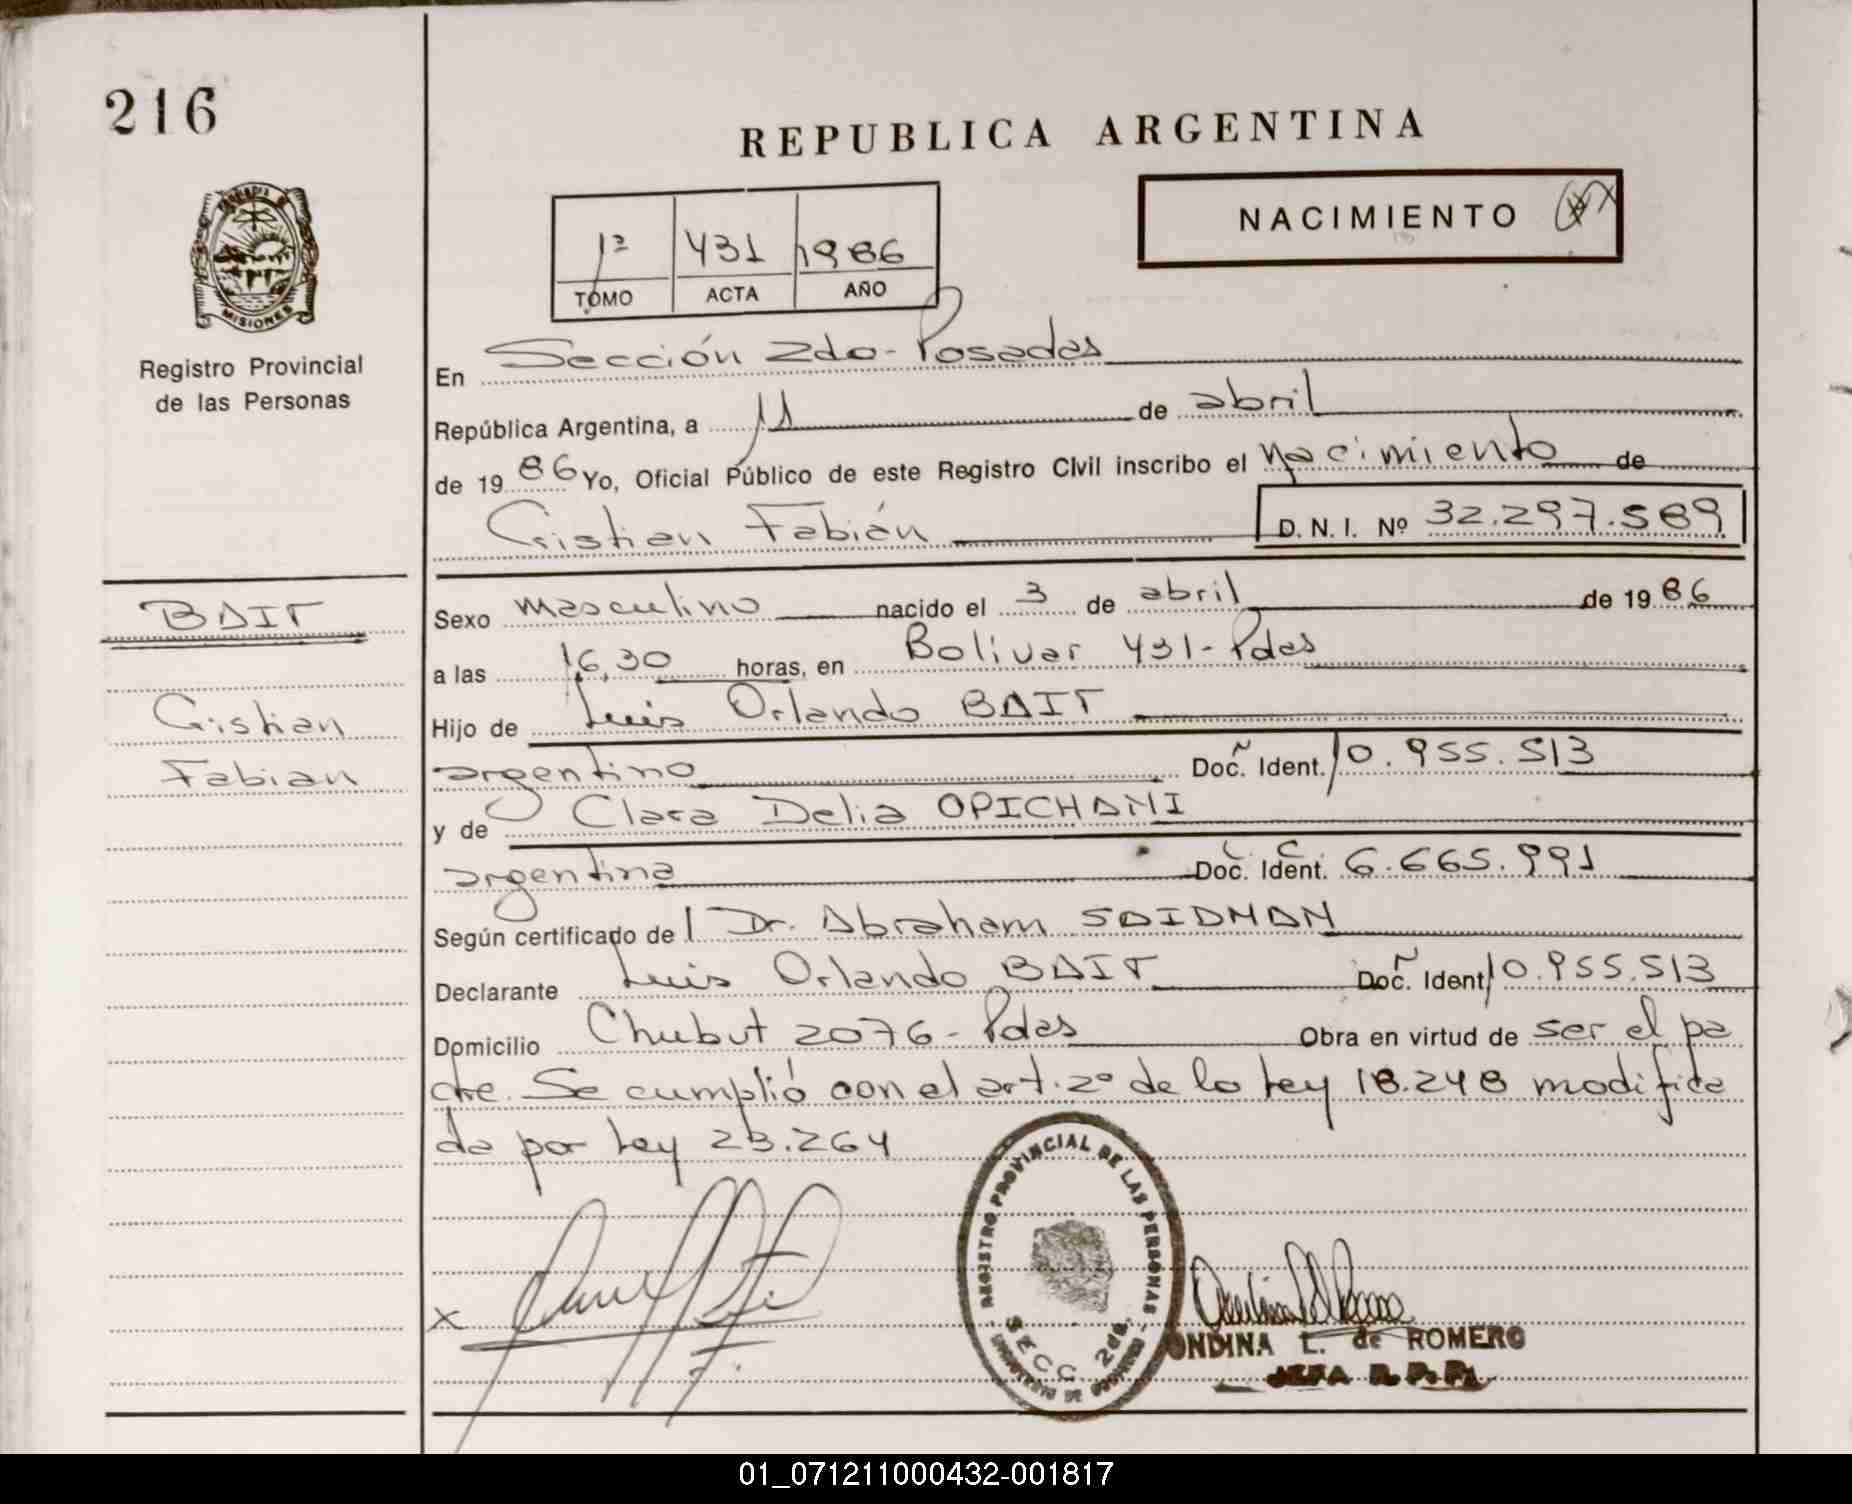 216
REPUBLICA ARGENTINA
NACIMIENTO
1º 431 1986
TOMO ACTA AÑO
MISIONES
Registro Provincial
de las Personas
En Sección 2da - Posadas
República Argentina, a 11 de abril
de 1986 Yo, Oficial Público de este Registro Civil inscribo el nacimiento de
Cristian Fabián D.N.I. Nº 32.297.589
BAIT
Cristian
Fabian
Sexo masculino nacido el 3 de abril de 1986
a las 16,30 horas, en Bolivar 431 - Pdas
Hijo de Luis Orlando BAIT
argentino Doc. Ident. 10.955.513
y de Clara Delia OPICHANI
argentina C. C. Doc. Ident. 6.665.991
Según certificado de l Dr. Abraham SAIDMAN
Declarante Luis Orlando BAIT Doc. Ident. 10.955.513
Domicilio Chubut 2076 - Pdas Obra en virtud de ser el pa
dre. Se cumplió con el art. 2º de la Ley 18.248 modifica
da por Ley 23.264
REGISTRO PROVINCIAL DE LAS PERSONAS
SECC. 2da.
MINISTERIO DE GOBIERNO
X
ONDINA L. de ROMERO
JEFA R. P. P.
01_071211000432-001817